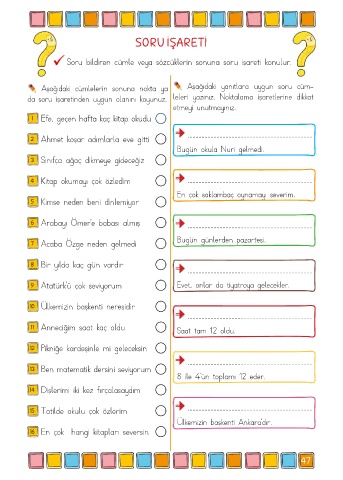 SORU İŞARETİ
Soru bildiren cümle veya sözcüklerin sonuna soru işareti konulur.
Aşağıdaki cümlelerin sonuna nokta ya
da soru işaretinden uygun olanını koyunuz.
1 Efe, geçen hafta kaç kitap okudu
2 Ahmet koşar adımlarla eve gitti
3 Sınıfça ağaç dikmeye gideceğiz
4 Kitap okumayı çok özledim
5 Kimse neden beni dinlemiyor
6 Arabayı Ömer'e babası almış
7 Acaba Özge neden gelmedi
8 Bir yılda kaç gün vardır
9 Atatürk'ü çok seviyorum
10 Ülkemizin başkenti neresidir
11 Anneciğim saat kaç oldu
12 Pikniğe kardeşinle mi geleceksin
13 Ben matematik dersini seviyorum
14 Dişlerimi iki kez fırçalasaydım
15 Tatilde okulu çok özlerim
16 En çok hangi kitapları seversin
Aşağıdaki yanıtlara uygun soru cüm-
leleri yazınız. Noktalama işaretlerine dikkat
etmeyi unutmayınız.
Bugün okula Nuri gelmedi.
En çok saklambaç oynamayı severim.
Bugün günlerden pazartesi.
Evet, onlar da tiyatroya gelecekler.
Saat tam 12 oldu.
8 ile 4'ün toplamı 12 eder.
Ülkemizin başkenti Ankara'dır.
47